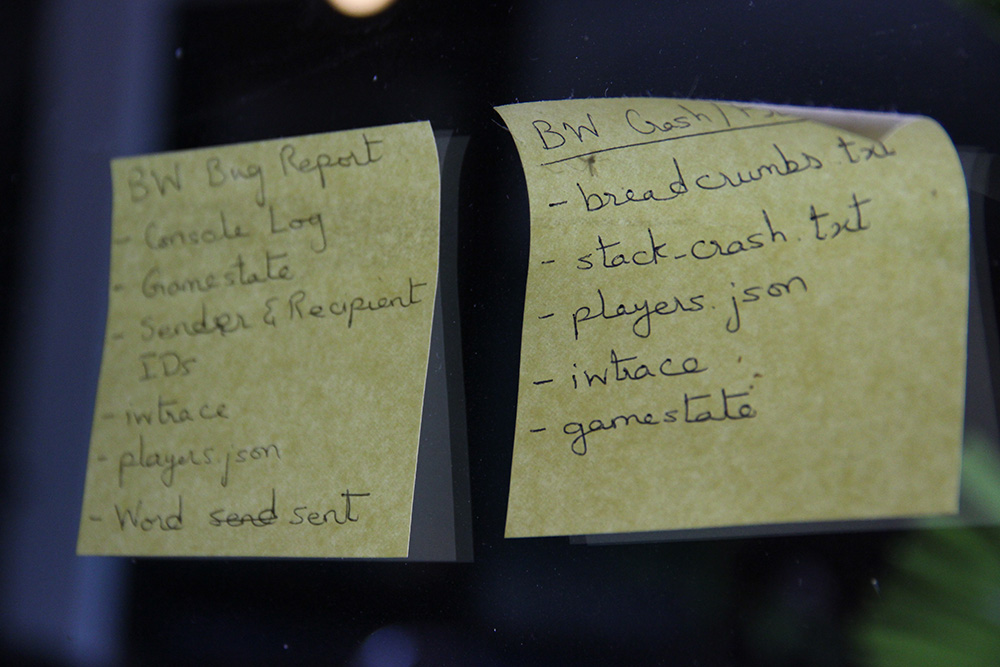 BW Bug Report
- Console Log
- Gamestate
- Sender & Recipient
IDs
- iwtrace
- players.json
- Word send sent
BW Crash/
- breadcrumbs.txt
- stack-crash.txt
- players.json
- iwtrace
- gamestate